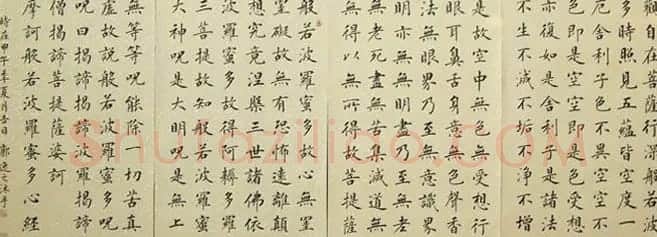 觀自在菩薩行深般若波
多時照見五蘊皆空度一
厄舍利子色不異空空不
色即是空空即是色受想
亦復如是舍利子是諸法
不生不滅不垢不淨不增
是故空中無色無受想行
眼耳鼻舌身意無色聲香
法無眼界乃至無意識界
明亦無無明盡乃至無老
無老死盡無苦集滅道無
無得以無所得故菩提薩
般若波羅蜜多故心無罣
罣礙故無有恐怖遠離顛
想究竟涅槃三世諸佛依
波羅蜜多故得阿耨多羅
三菩提故知般若波羅蜜
大神呪是大明呪是無上
無等等呪能除一切苦真
虛故說般若波羅蜜多呪
呪曰揭諦揭諦波羅揭諦
僧揭諦菩提薩婆訶
摩訶般若波羅蜜多心經
時在甲午年夏月吉日